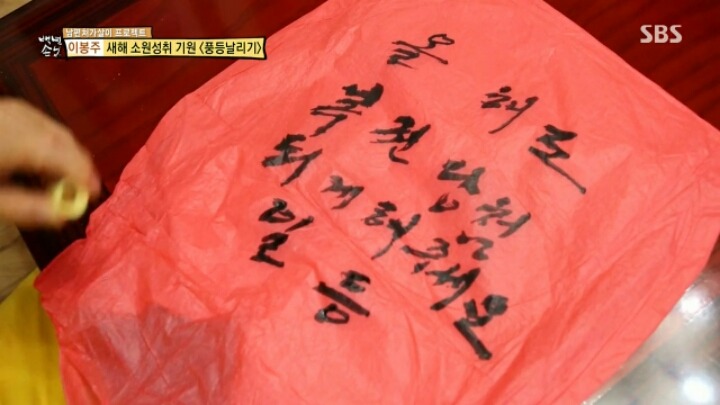 백년손님
남편처가살이 프로젝트
이봉주 새해 소원성취 기원 <풍등날리기>
SBS
올 해도
복권 당첨
되게 해주세요
일 등